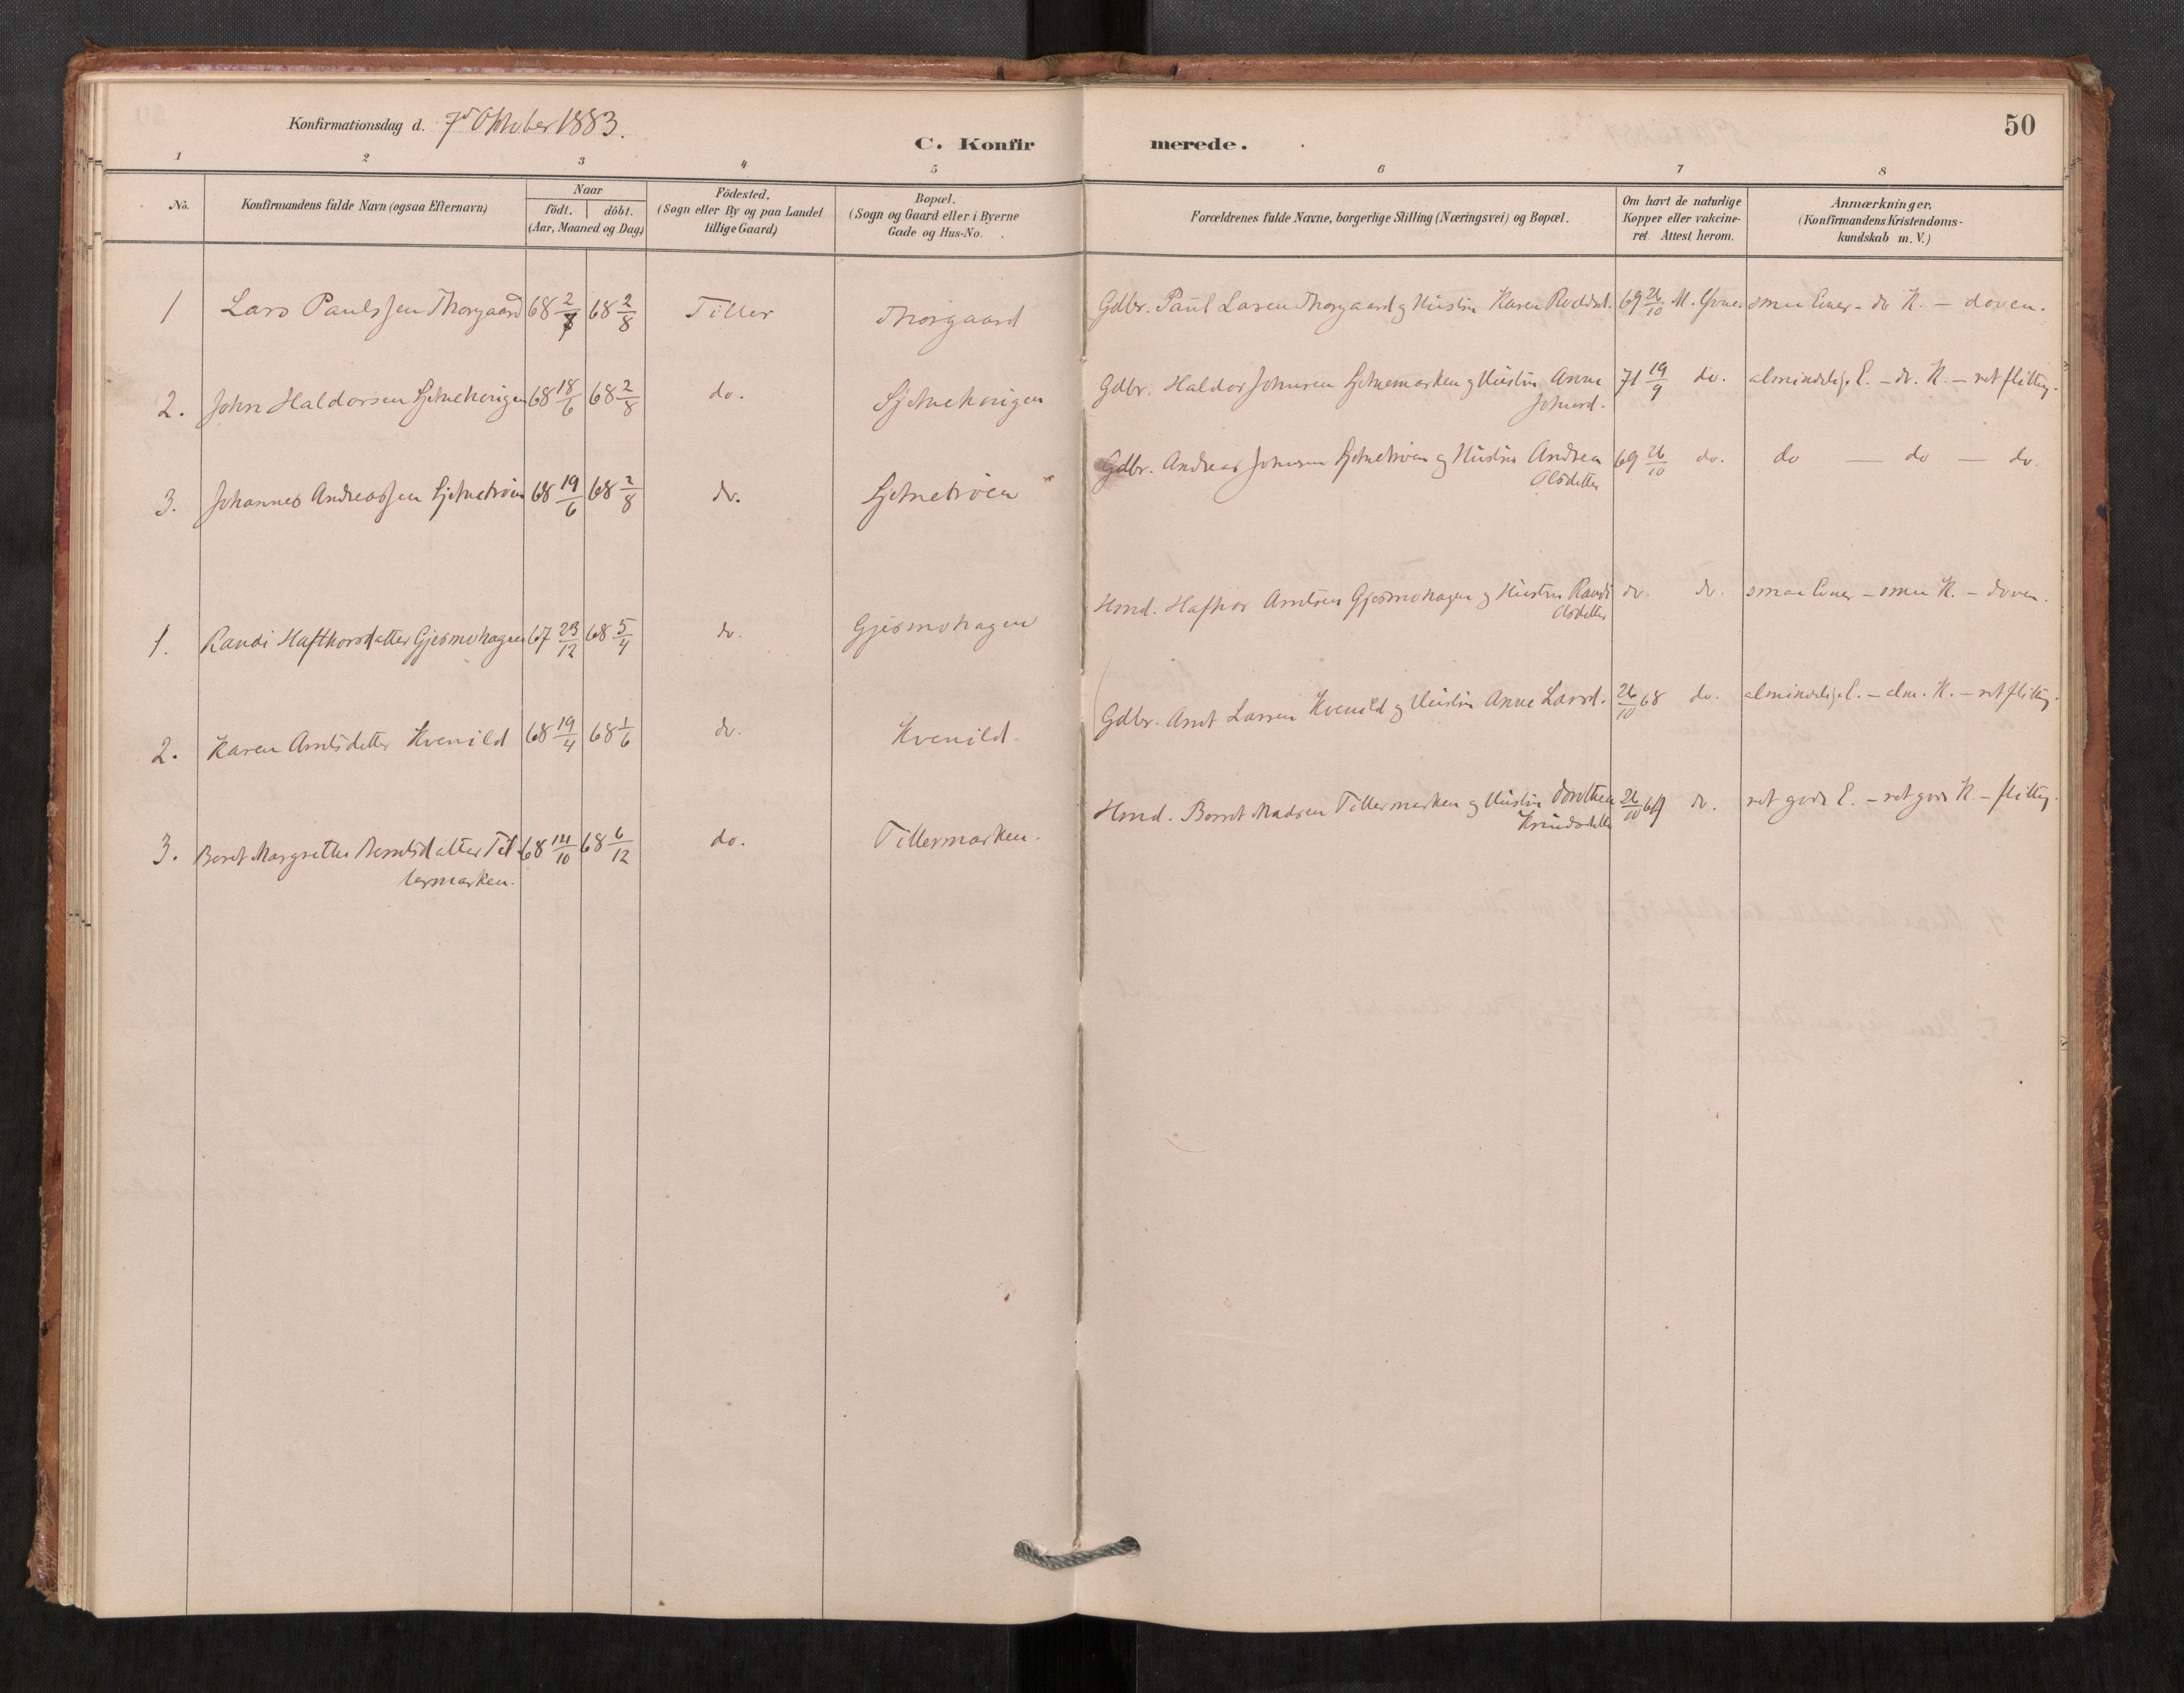 Konfirmationsdag d. 7de Oktober 1883.
50
C. Konfirmerede.
1 2 3 4 5 6 7 8
No.
Konfirmandens fulde Navn (ogsaa Efternavn)
Naar
födt. döbt.
(Aar, Maaned og Dag)
Födested,
(Sogn eller By og paa Landet
tillige Gaard)
Bopæl.
(Sogn og Gaard eller i Byerne
Gade og Hus-No.
Forældrenes fulde Navne, borgerlige Stilling (Næringsvei) og Bopæl.
Om havt de naturlige
Kopper eller vakcine-
ret. Attest herom.
Anmærkninger,
(Konfirmandens Kristendoms-
kundskab m. V.)
1 Lars Paulssen Thorgaard 68 2/7 68 2/8 Tiller Thorgaard Gdbr. Paul Larsen Thorgaard og Hustru Karen 69 26/10 smaa Evner - do K. - doven.
2. John Haldorsen 68 18/6 68 2/8 do. Gdbr. Haldor Johnsen og Hustru Anne 71 19/9 do. almindelige E. - do. K. - ret flittig.
Johnsd.
3. Johannes Andreassen Sjetnetrøen 68 19/6 68 2/8 do. Sjetnetrøen Gdbr. Andreas Johnsen Sjetnetrøen og Hustru Andrea 69 26/10 do. do — do — do.
Olsdatter
1. Randi Hafthorsdatter Gjesmohagen 67 23/12 68 5/4 do. Gjesmohagen Hmd. Hafthor Arntsen Gjesmohagen og Hustru Randi do. do. smaa Evner - smaa K. - doven.
Olsdatter
2. Karen Arntsdatter Kvenild 68 19/4 68 1/6 do. Kvenild. Gdbr. Arnt Larsen Kvenild og Hustru Anne Larsd. 26/10 68 do. almindelige E. - alm. K. - ret flittig.
3. Beret Margrethe Berntsdatter Til- 68 14/10 68 6/12 do. Tillermarken. Hmd. Bernt Madsen Tillermarken og Hustru Dorothea 26/10 69 do. ret gode E. - ret god K. - flittig.
lermarken. Knudsdatter